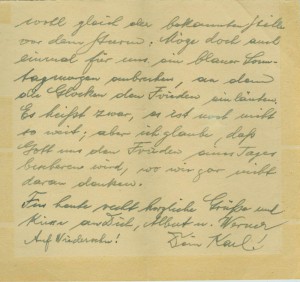 wohl gleich der bekannten Stille
vor dem Sturm. Möge doch auch
einmal für uns ein blauer Sonn-
tagmorgen anbrechen, an dem
die Glocken den Frieden einläuten.
Es heißt zwar, es ist noch nicht
so weit; aber ich glaube, daß
Gott uns den Frieden eines Tages
bescheren wird, wo wir gar nicht
daran denken.
Für heute recht herzliche Grüße und
an Dich, Albert u. Werner
Auf Wiedersehn! Dein Karl!